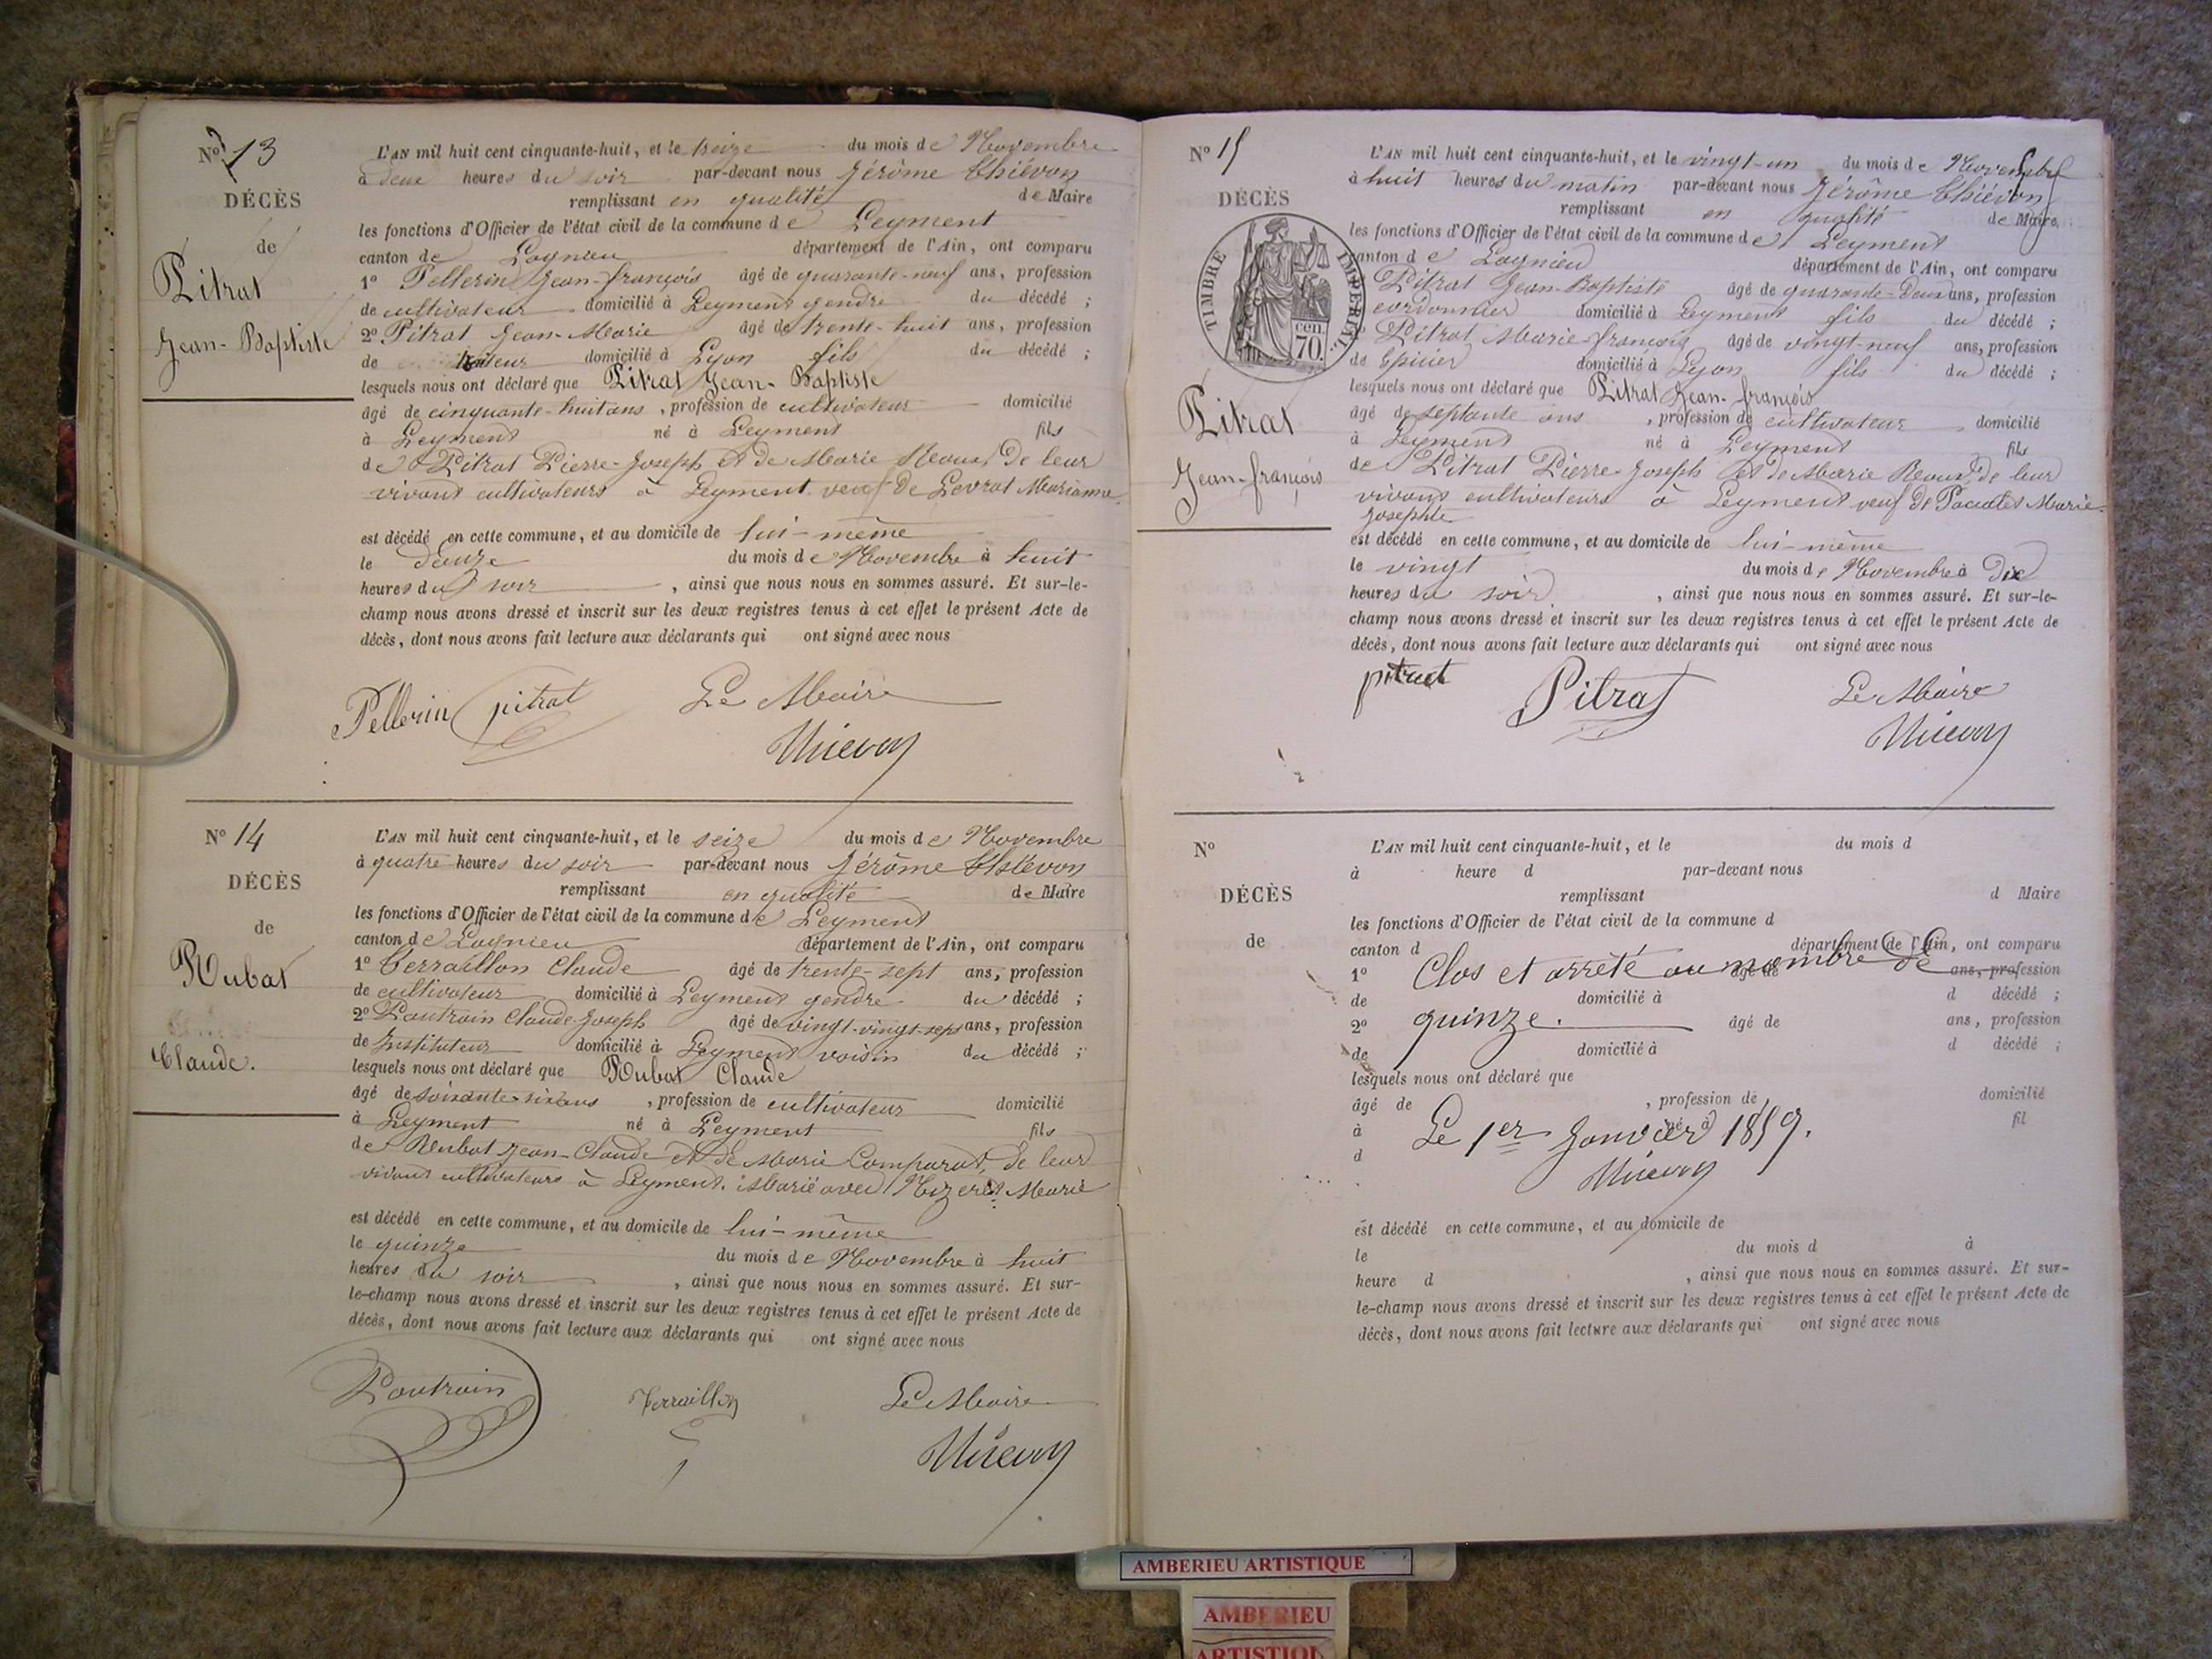 Nº 13
DÉCÈS
de
Pitrat
Jean-Baptiste
L'AN mil huit cent cinquante-huit, et le treize du mois de Novembre
à deux heures du soir par-devant nous Jérôme Thiévon
remplissant en qualité de Maire
les fonctions d'Officier de l'état civil de la commune de Leyment
canton de Lagnieu département de l'Ain, ont comparu
1º Pellerin Jean-françois âgé de quarante-neuf ans, profession
de cultivateur domicilié à Leyment gendre du décédé ;
2º Pitrat Jean-Marie âgé de trente-huit ans, profession
de domicilié à Lyon fils du décédé ;
lesquels nous ont déclaré que Pitrat Jean-Baptiste
âgé de cinquante-huit ans, profession de cultivateur domicilié
à Leyment né à Leyment fils
de Pitrat Pierre-Joseph et de Marie Roux, de leur
vivant cultivateurs à Leyment veuf de Levrat Marianne
est décédé en cette commune, et au domicile de lui-même
le douze du mois de Novembre à huit
heures du soir, ainsi que nous nous en sommes assuré. Et sur-le-
champ nous avons dressé et inscrit sur les deux registres tenus à cet effet le présent Acte de
décès, dont nous avons fait lecture aux déclarants qui ont signé avec nous
Pellerin pitrat Le Maire
Thiévon
Nº 14
DÉCÈS
de
Rubat
Claude.
L'AN mil huit cent cinquante-huit, et le seize du mois de Novembre
à quatre heures du soir par-devant nous Jérôme Thiévon
remplissant en qualité de Maire
les fonctions d'Officier de l'état civil de la commune de Leyment
canton de Lagnieu département de l'Ain, ont comparu
1º Terraillon Claude âgé de trente-sept ans, profession
de cultivateur domicilié à Leyment gendre du décédé ;
2º Poutrain Claude-Joseph âgé de vingt-vingt-sept ans, profession
de Instituteur domicilié à Leyment voisin du décédé ;
lesquels nous ont déclaré que Rubat Claude
âgé de soixante-six ans, profession de cultivateur domicilié
à Leyment né à Leyment fils
de Rubat Jean-Claude et de Marie Comparat, de leur
vivant cultivateurs à Leyment. Marié avec Mizeret Marie
est décédé en cette commune, et au domicile de lui-même
le quinze du mois de Novembre à huit
heures du soir, ainsi que nous nous en sommes assuré. Et sur-
le-champ nous avons dressé et inscrit sur les deux registres tenus à cet effet le présent Acte de
décès, dont nous avons fait lecture aux déclarants qui ont signé avec nous
Poutrain Terraillon Le Maire
Thiévon
Nº 15
DÉCÈS
TIMBRE IMPERIAL
cen.
70.
Pitrat
Jean-françois
L'AN mil huit cent cinquante-huit, et le vingt-un du mois de Novembre
à huit heures du matin par-devant nous Jérôme Thiévon
remplissant en qualité de Maire
les fonctions d'Officier de l'état civil de la commune de Leyment
canton de Lagnieu département de l'Ain, ont comparu
Pitrat Jean-Baptiste âgé de quarante-deux ans, profession
cordonnier domicilié à Leyment fils du décédé ;
Pitrat Marie-françois âgé de vingt-neuf ans, profession
de Epicier domicilié à Lyon fils du décédé ;
lesquels nous ont déclaré que Pitrat Jean-françois
âgé de septante ans, profession de cultivateur domicilié
à Leyment né à Leyment fils
de Pitrat Pierre-Joseph et de Marie Roux, de leur
vivant cultivateurs à Leyment veuf de Marie-
Josephte
est décédé en cette commune, et au domicile de lui-même
le vingt du mois de Novembre à Dix
heures du soir, ainsi que nous nous en sommes assuré. Et sur-le-
champ nous avons dressé et inscrit sur les deux registres tenus à cet effet le présent Acte de
décès, dont nous avons fait lecture aux déclarants qui ont signé avec nous
pitrat Pitrat Le Maire
Thiévon
Nº
DÉCÈS
de
L'AN mil huit cent cinquante-huit, et le du mois d
à heure d par-devant nous
remplissant d Maire
les fonctions d'Officier de l'état civil de la commune d
canton d département de l'Ain, ont comparu
Clos et arrêté au nombre de
1º âgé de ans, profession
de domicilié à d décédé ;
quinze.
2º âgé de ans, profession
de domicilié à d décédé ;
lesquels nous ont déclaré que
âgé de , profession de domicilié
à né à fil
Le 1er Janvier 1859.
d
Thiévon
est décédé en cette commune, et au domicile de
le du mois d à
heure d , ainsi que nous nous en sommes assuré. Et sur-
le-champ nous avons dressé et inscrit sur les deux registres tenus à cet effet le présent Acte de
décès, dont nous avons fait lecture aux déclarants qui ont signé avec nous
AMBERIEU ARTISTIQUE
AMBERIEU
ARTISTIQ